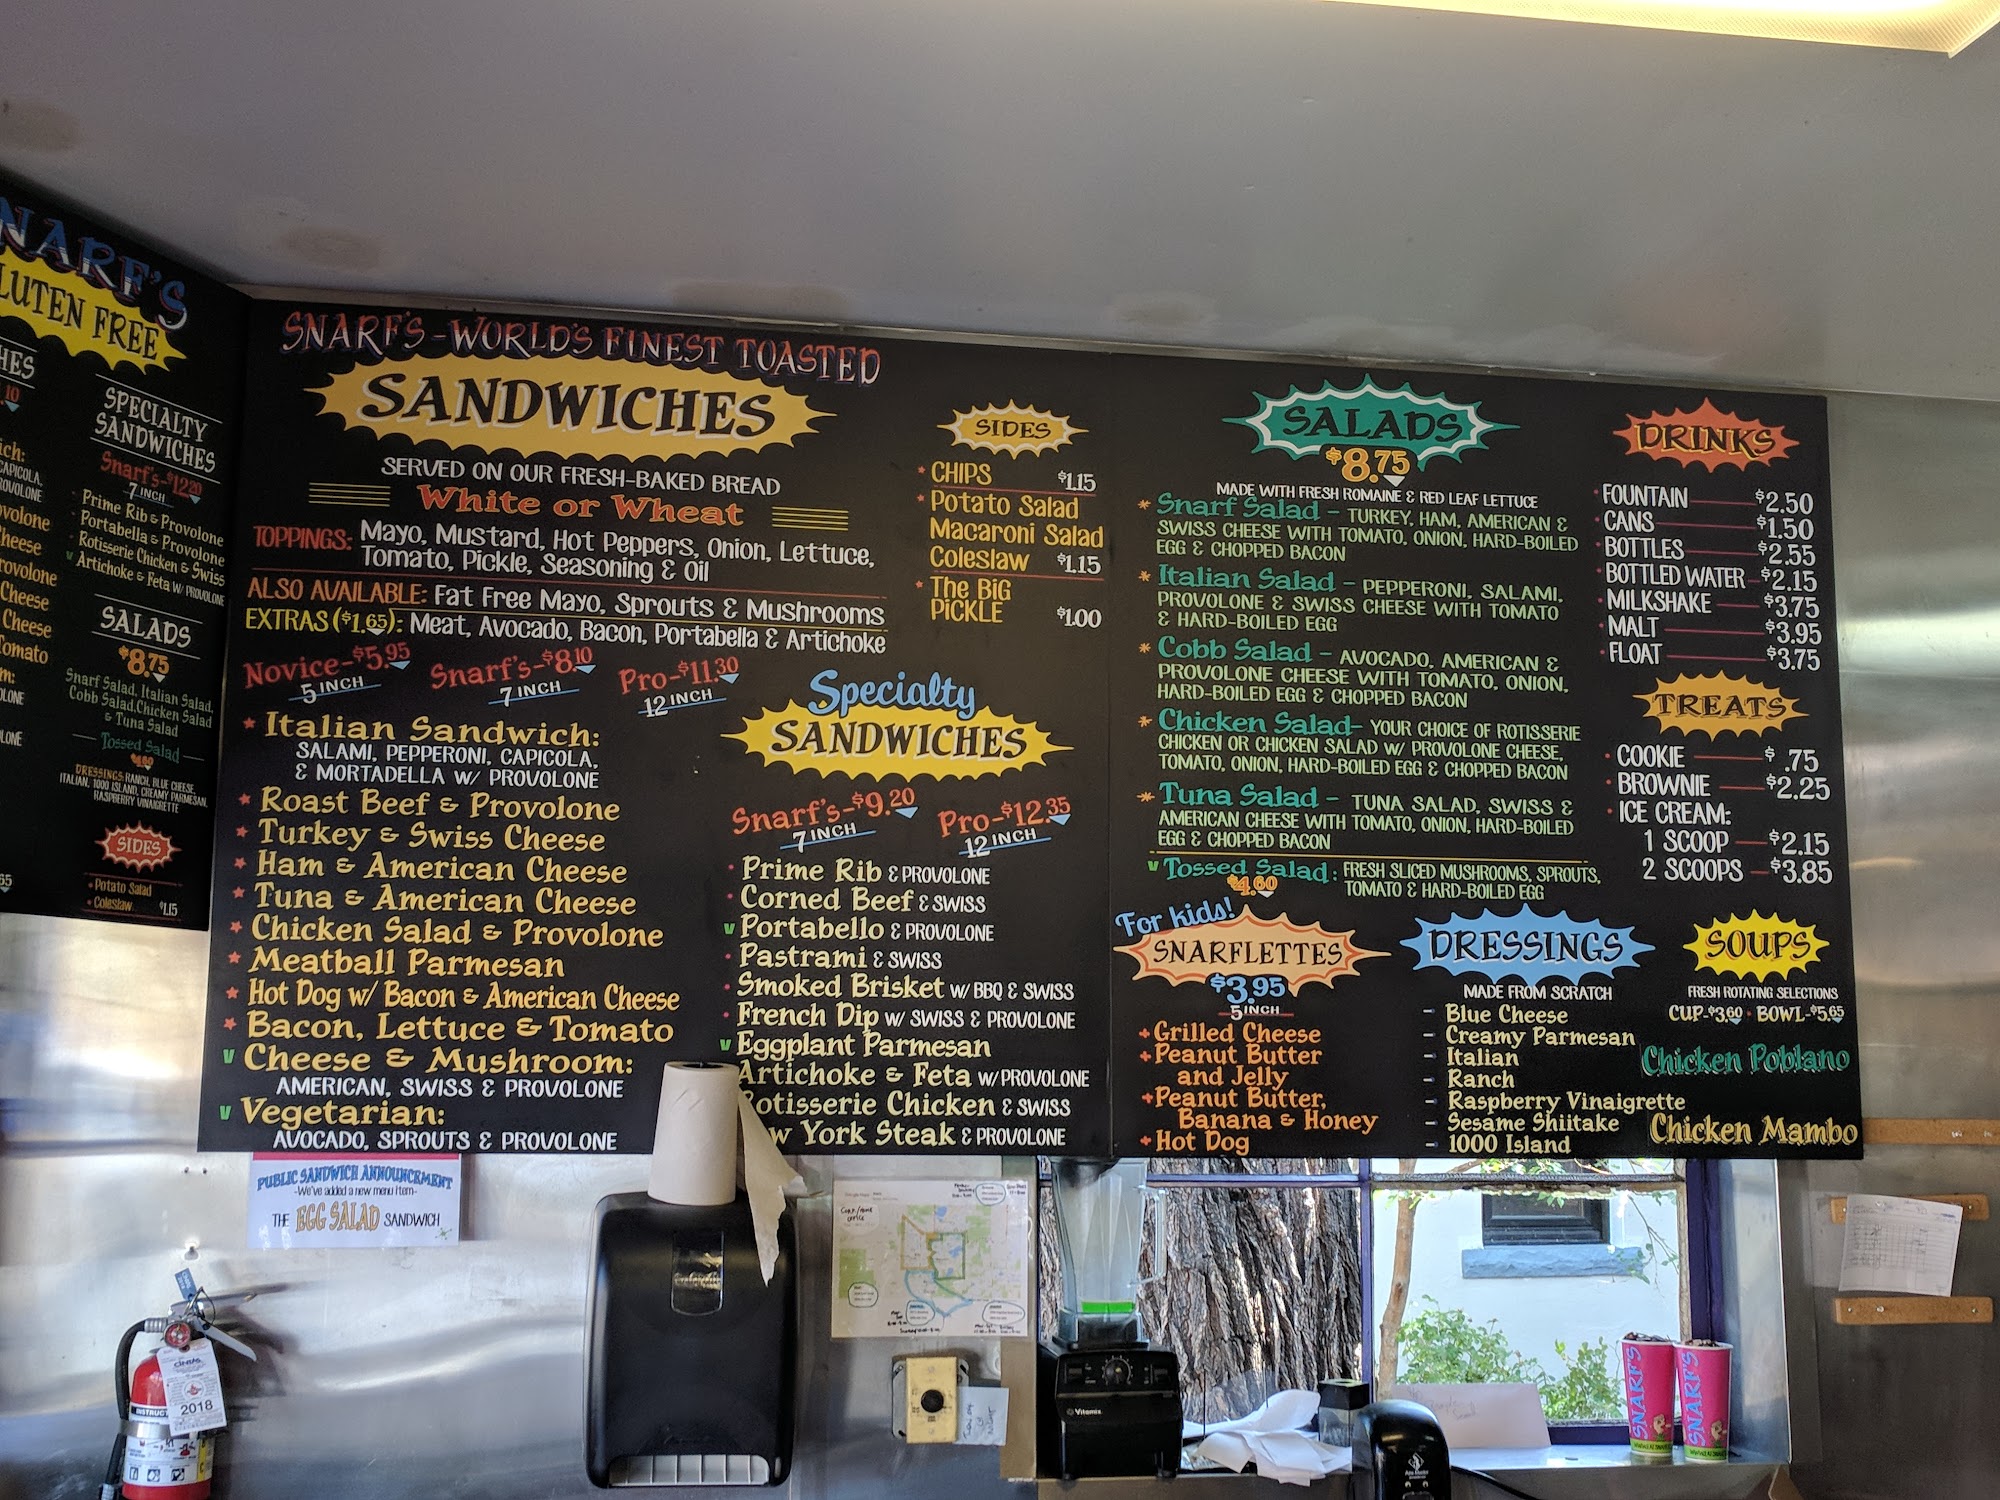 NARF'S
LUTEN FREE
HES
.10
ich:
CAPICOLA,
ROVOLONE
ovolone
Cheese
rovolone
Cheese
Cheese
Tomato
m:
OLONE
LONE
65
SPECIALTY
SANDWICHES
Snarf's-$12.20
7 INCH
Prime Rib & Provolone
Portabella & Provolone
Rotisserie Chicken & Swiss
V Artichoke & Feta W/ PROVOLONE
SALADS
$8.75
Snarf Salad, Italian Salad,
Cobb Salad, Chicken Salad
& Tuna Salad
Tossed Salad
$4.60
DRESSINGS RANCH, BLUE CHEESE,
ITALIAN, 1000 ISLAND, CREAMY PARMESAN,
RASPBERRY VINAIGRETTE
SIDES
Potato Salad
Coleslaw $1.15
SNARF'S-WORLD'S FINEST TOASTED
SANDWICHES
SERVED ON OUR FRESH-BAKED BREAD
White or Wheat
TOPPINGS: Mayo, Mustard, Hot Peppers, Onion, Lettuce,
Tomato, Pickle, Seasoning & Oil
ALSO AVAILABLE: Fat Free Mayo, Sprouts & Mushrooms
EXTRAS ($1.65): Meat, Avocado, Bacon, Portabella & Artichoke
Novice-$5.95 Snarf's-$8.10 Pro-$11.30
5 INCH 7 INCH 12 INCH
Italian Sandwich:
SALAMI, PEPPERONI, CAPICOLA,
& MORTADELLA W/ PROVOLONE
Roast Beef & Provolone
Turkey & Swiss Cheese
Ham & American Cheese
Tuna & American Cheese
Chicken Salad & Provolone
Meatball Parmesan
Hot Dog w/ Bacon & American Cheese
Bacon, Lettuce & Tomato
V Cheese & Mushroom:
AMERICAN, SWISS & PROVOLONE
V Vegetarian:
AVOCADO, SPROUTS & PROVOLONE
SIDES
CHIPS $1.15
Potato Salad
Macaroni Salad
Coleslaw $1.15
The BIG
PICKLE $1.00
Specialty
SANDWICHES
Snarf's-$9.20 Pro-$12.35
7 INCH 12 INCH
Prime Rib & PROVOLONE
Corned Beef & SWISS
V Portabello & PROVOLONE
Pastrami & SWISS
Smoked Brisket W/ BBQ & SWISS
French Dip W/ SWISS & PROVOLONE
V Eggplant Parmesan
Artichoke & Feta W/ PROVOLONE
otisserie Chicken & SWISS
w York Steak & PROVOLONE
SALADS
$8.75
MADE WITH FRESH ROMAINE & RED LEAF LETTUCE
Snarf Salad - TURKEY, HAM, AMERICAN &
SWISS CHEESE WITH TOMATO, ONION, HARD-BOILED
EGG & CHOPPED BACON
Italian Salad - PEPPERONI, SALAMI,
PROVOLONE & SWISS CHEESE WITH TOMATO
& HARD-BOILED EGG
Cobb Salad - AVOCADO, AMERICAN &
PROVOLONE CHEESE WITH TOMATO, ONION,
HARD-BOILED EGG & CHOPPED BACON
Chicken Salad- YOUR CHOICE OF ROTISSERIE
CHICKEN OR CHICKEN SALAD W/ PROVOLONE CHEESE,
TOMATO, ONION, HARD-BOILED EGG & CHOPPED BACON
Tuna Salad - TUNA SALAD, SWISS &
AMERICAN CHEESE WITH TOMATO, ONION, HARD-BOILED
EGG & CHOPPED BACON
V Tossed Salad: FRESH SLICED MUSHROOMS, SPROUTS,
$4.60 TOMATO & HARD-BOILED EGG
DRINKS
FOUNTAIN $2.50
CANS $1.50
BOTTLES $2.55
BOTTLED WATER $2.15
MILKSHAKE $3.75
MALT $3.95
FLOAT $3.75
TREATS
COOKIE $.75
BROWNIE $2.25
ICE CREAM:
1 SCOOP $2.15
2 SCOOPS $3.85
For kids!
SNARFLETTES
$3.95
5 INCH
Grilled Cheese
Peanut Butter
and Jelly
Peanut Butter,
Banana & Honey
Hot Dog
DRESSINGS
MADE FROM SCRATCH
- Blue Cheese
- Creamy Parmesan
- Italian
- Ranch
- Raspberry Vinaigrette
- Sesame Shiitake
- 1000 Island
SOUPS
FRESH ROTATING SELECTIONS
CUP-$3.60 · BOWL-$5.65
Chicken Poblano
Chicken Mambo
PUBLIC SANDWICH ANNOUNCEMENT
-We've added a new menu item-
THE EGG SALAD SANDWICH
CINTAS
2018
Vitamix
SNARF'S
SNARF'S